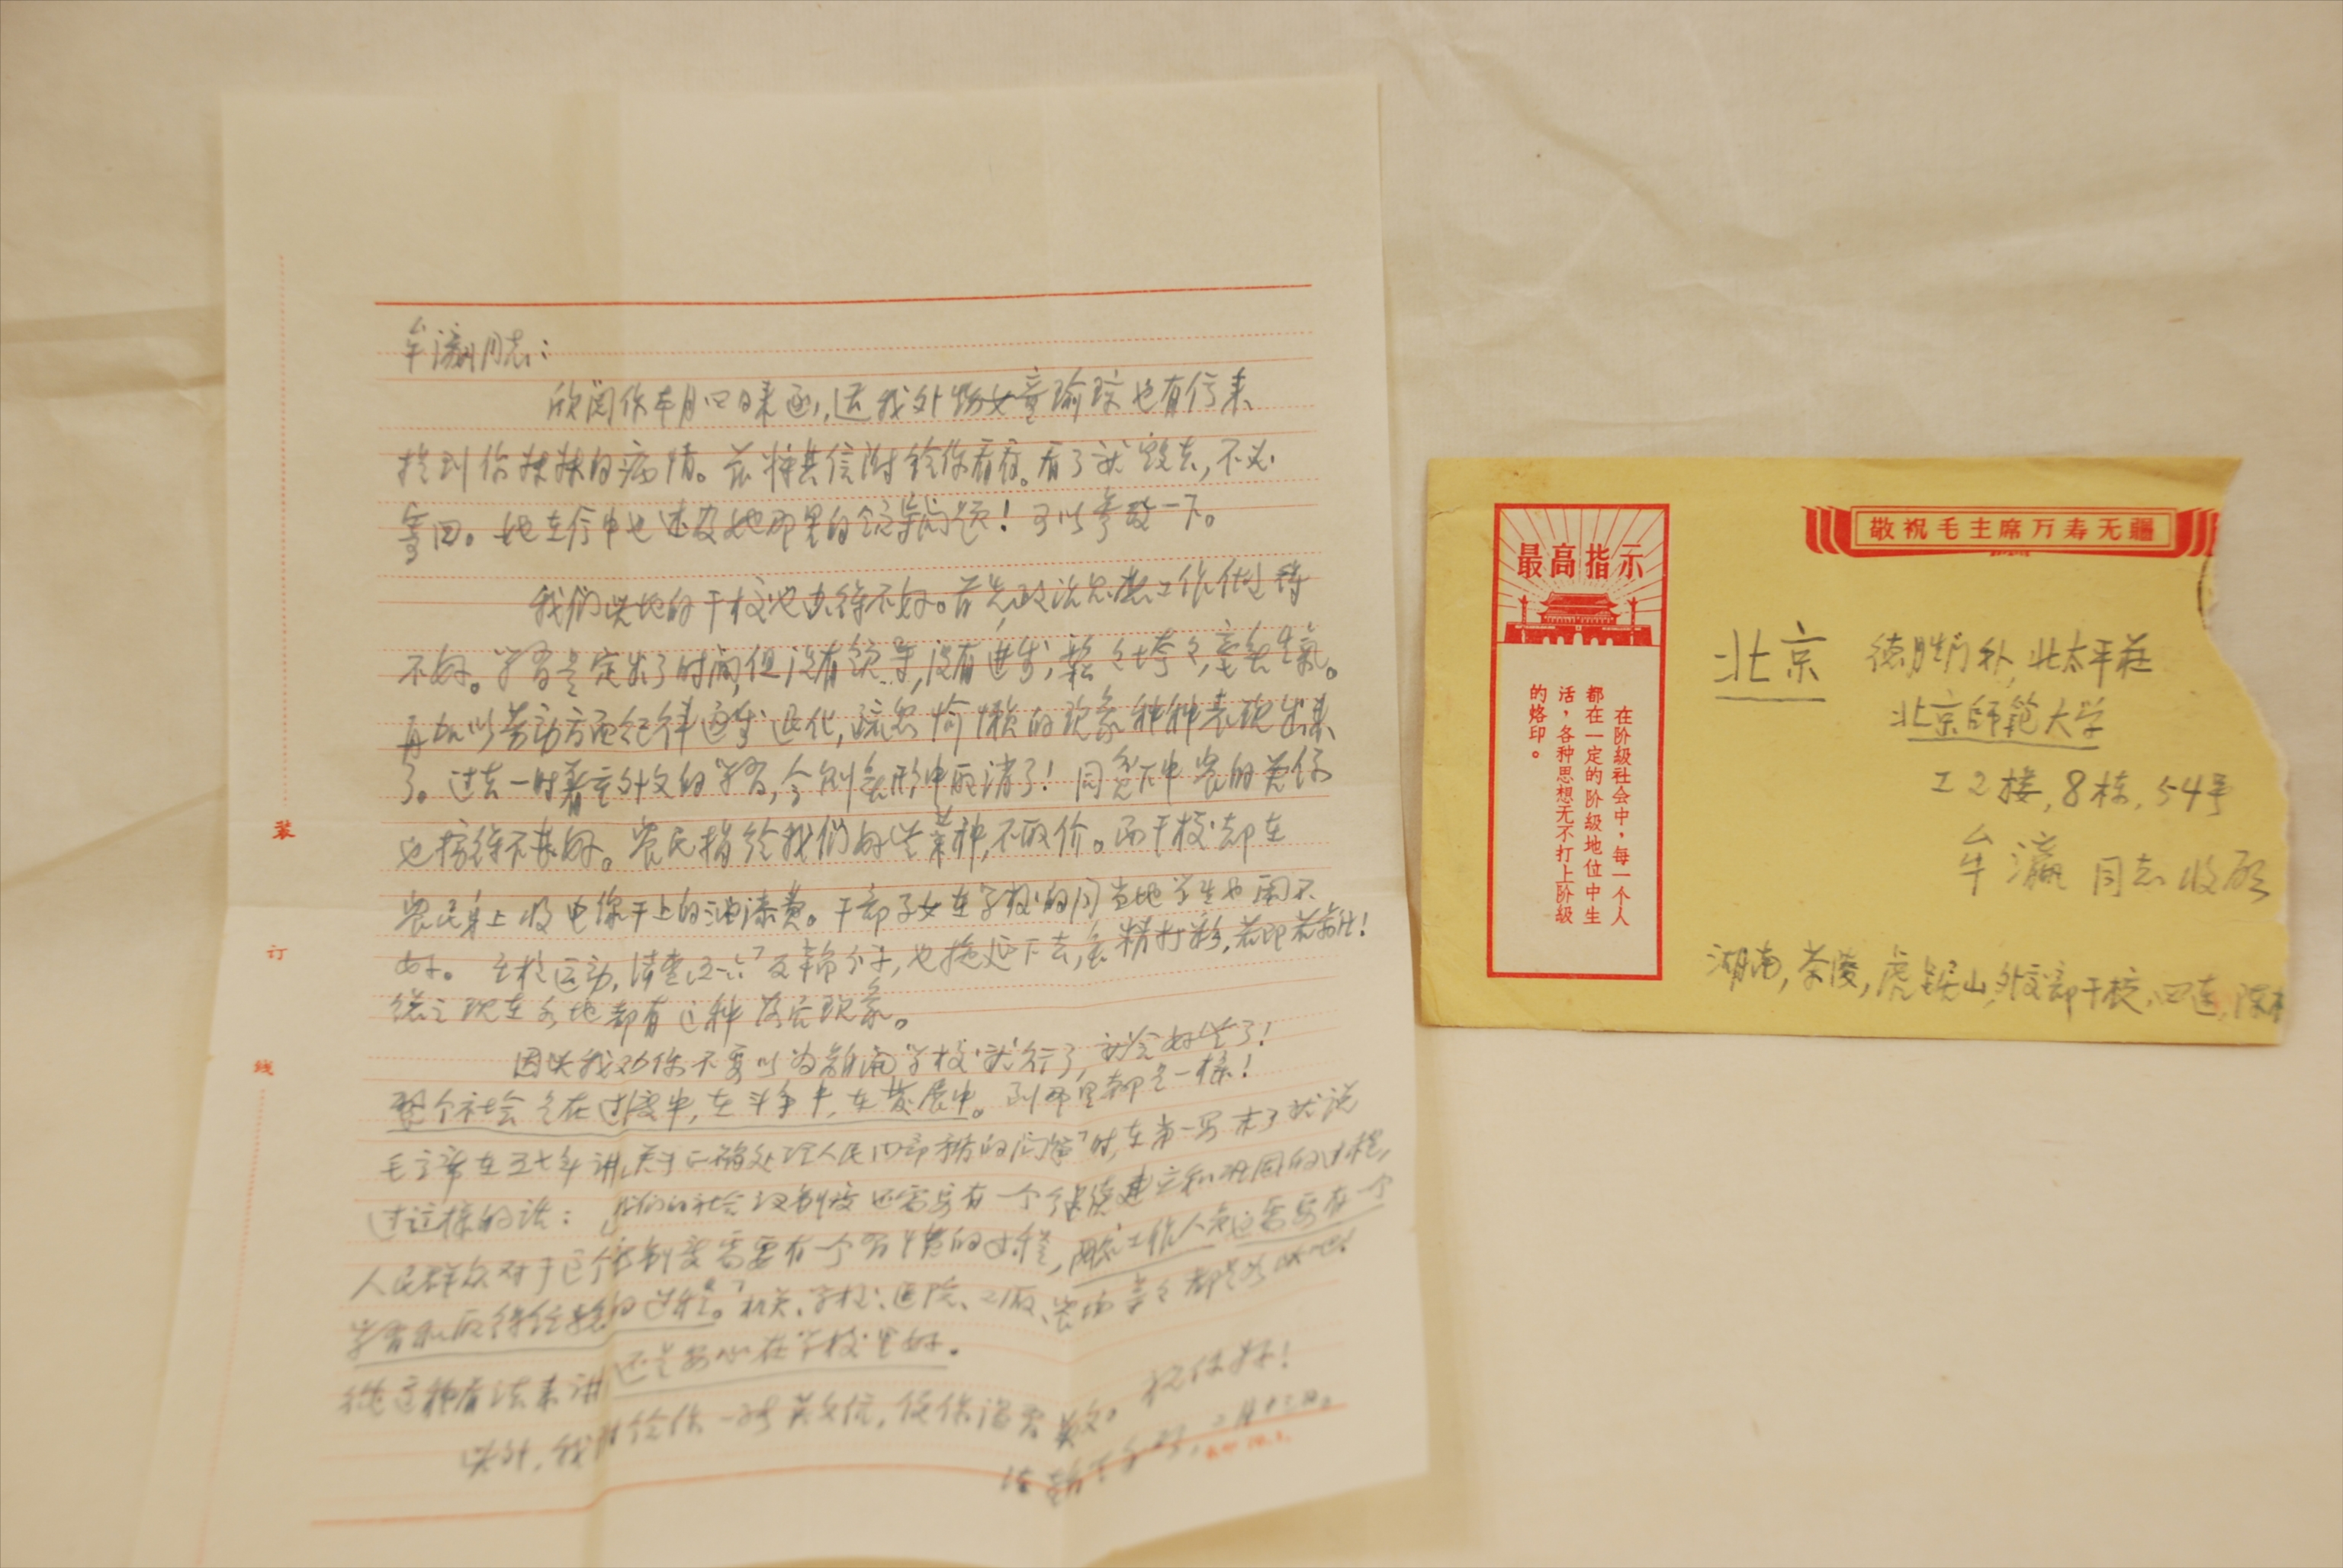 牟瀛同志：
欣阅你本月四日来函，适我外甥女童瑜琼也有信来
提到你妹妹的病情。兹将其信附给你看看。看了就毁去，不必
寄回。她在信中也述及她那里的领导问题！可以参考一下。
我们此地的干校也办得不好。首先政治思想工作做得
不好。学习是定出了时间，但没有领导，没有进步，松松垮垮，毫无生气。
再加以劳动方面纪律逐步退化，疏忽偷懒的现象种种表现出来
了。过去一时着重外文的学习，今则无形中取消了！同贫下中农的关系
也搞得不甚好。农民捐给我们好些菜种，不取价。而干校却在
农民身上收电线干上的油漆费。干部子女在学校的同当地学生也闹不
好。至于运动，清查五一六 分子，也拖延下去，无精打彩，若即若离！
总之现在各地都有这种落后现象。
因此我劝你不要以为离开学校就行了，就会好些了！
整个社会是在过渡中，在斗争中，在发展中。到那里都是一样！
毛主席在五七年讲「关于正确处理人民内部矛盾的问题」时，在第一 末了就说
过这样的话：「我们的社会主义制度还需要有一个继续建立和巩固的过程，
人民群众对于这个新制度需要有一个习惯的过程，国家工作人员也需要有一个
学习和取得经验的过程。」机关、学校、医院、工厂、农场等等都是如此吧！
从这种看法来讲还是安心在学校里好。
此外，我附给你一 英文信，供你 。祝你好！
二月十三日。
装
订
线
最高指示
在阶级社会中，每一个人
都在一定的阶级地位中生
活，各种思想无不打上阶级
的烙印。
敬祝毛主席万寿无疆
北京 德胜门外，北太平庄
北京师範大学
工2楼，8栋，54号
牟瀛 同志收启
湖南，茶陵，虎踞山，外交部干校，四连，陈